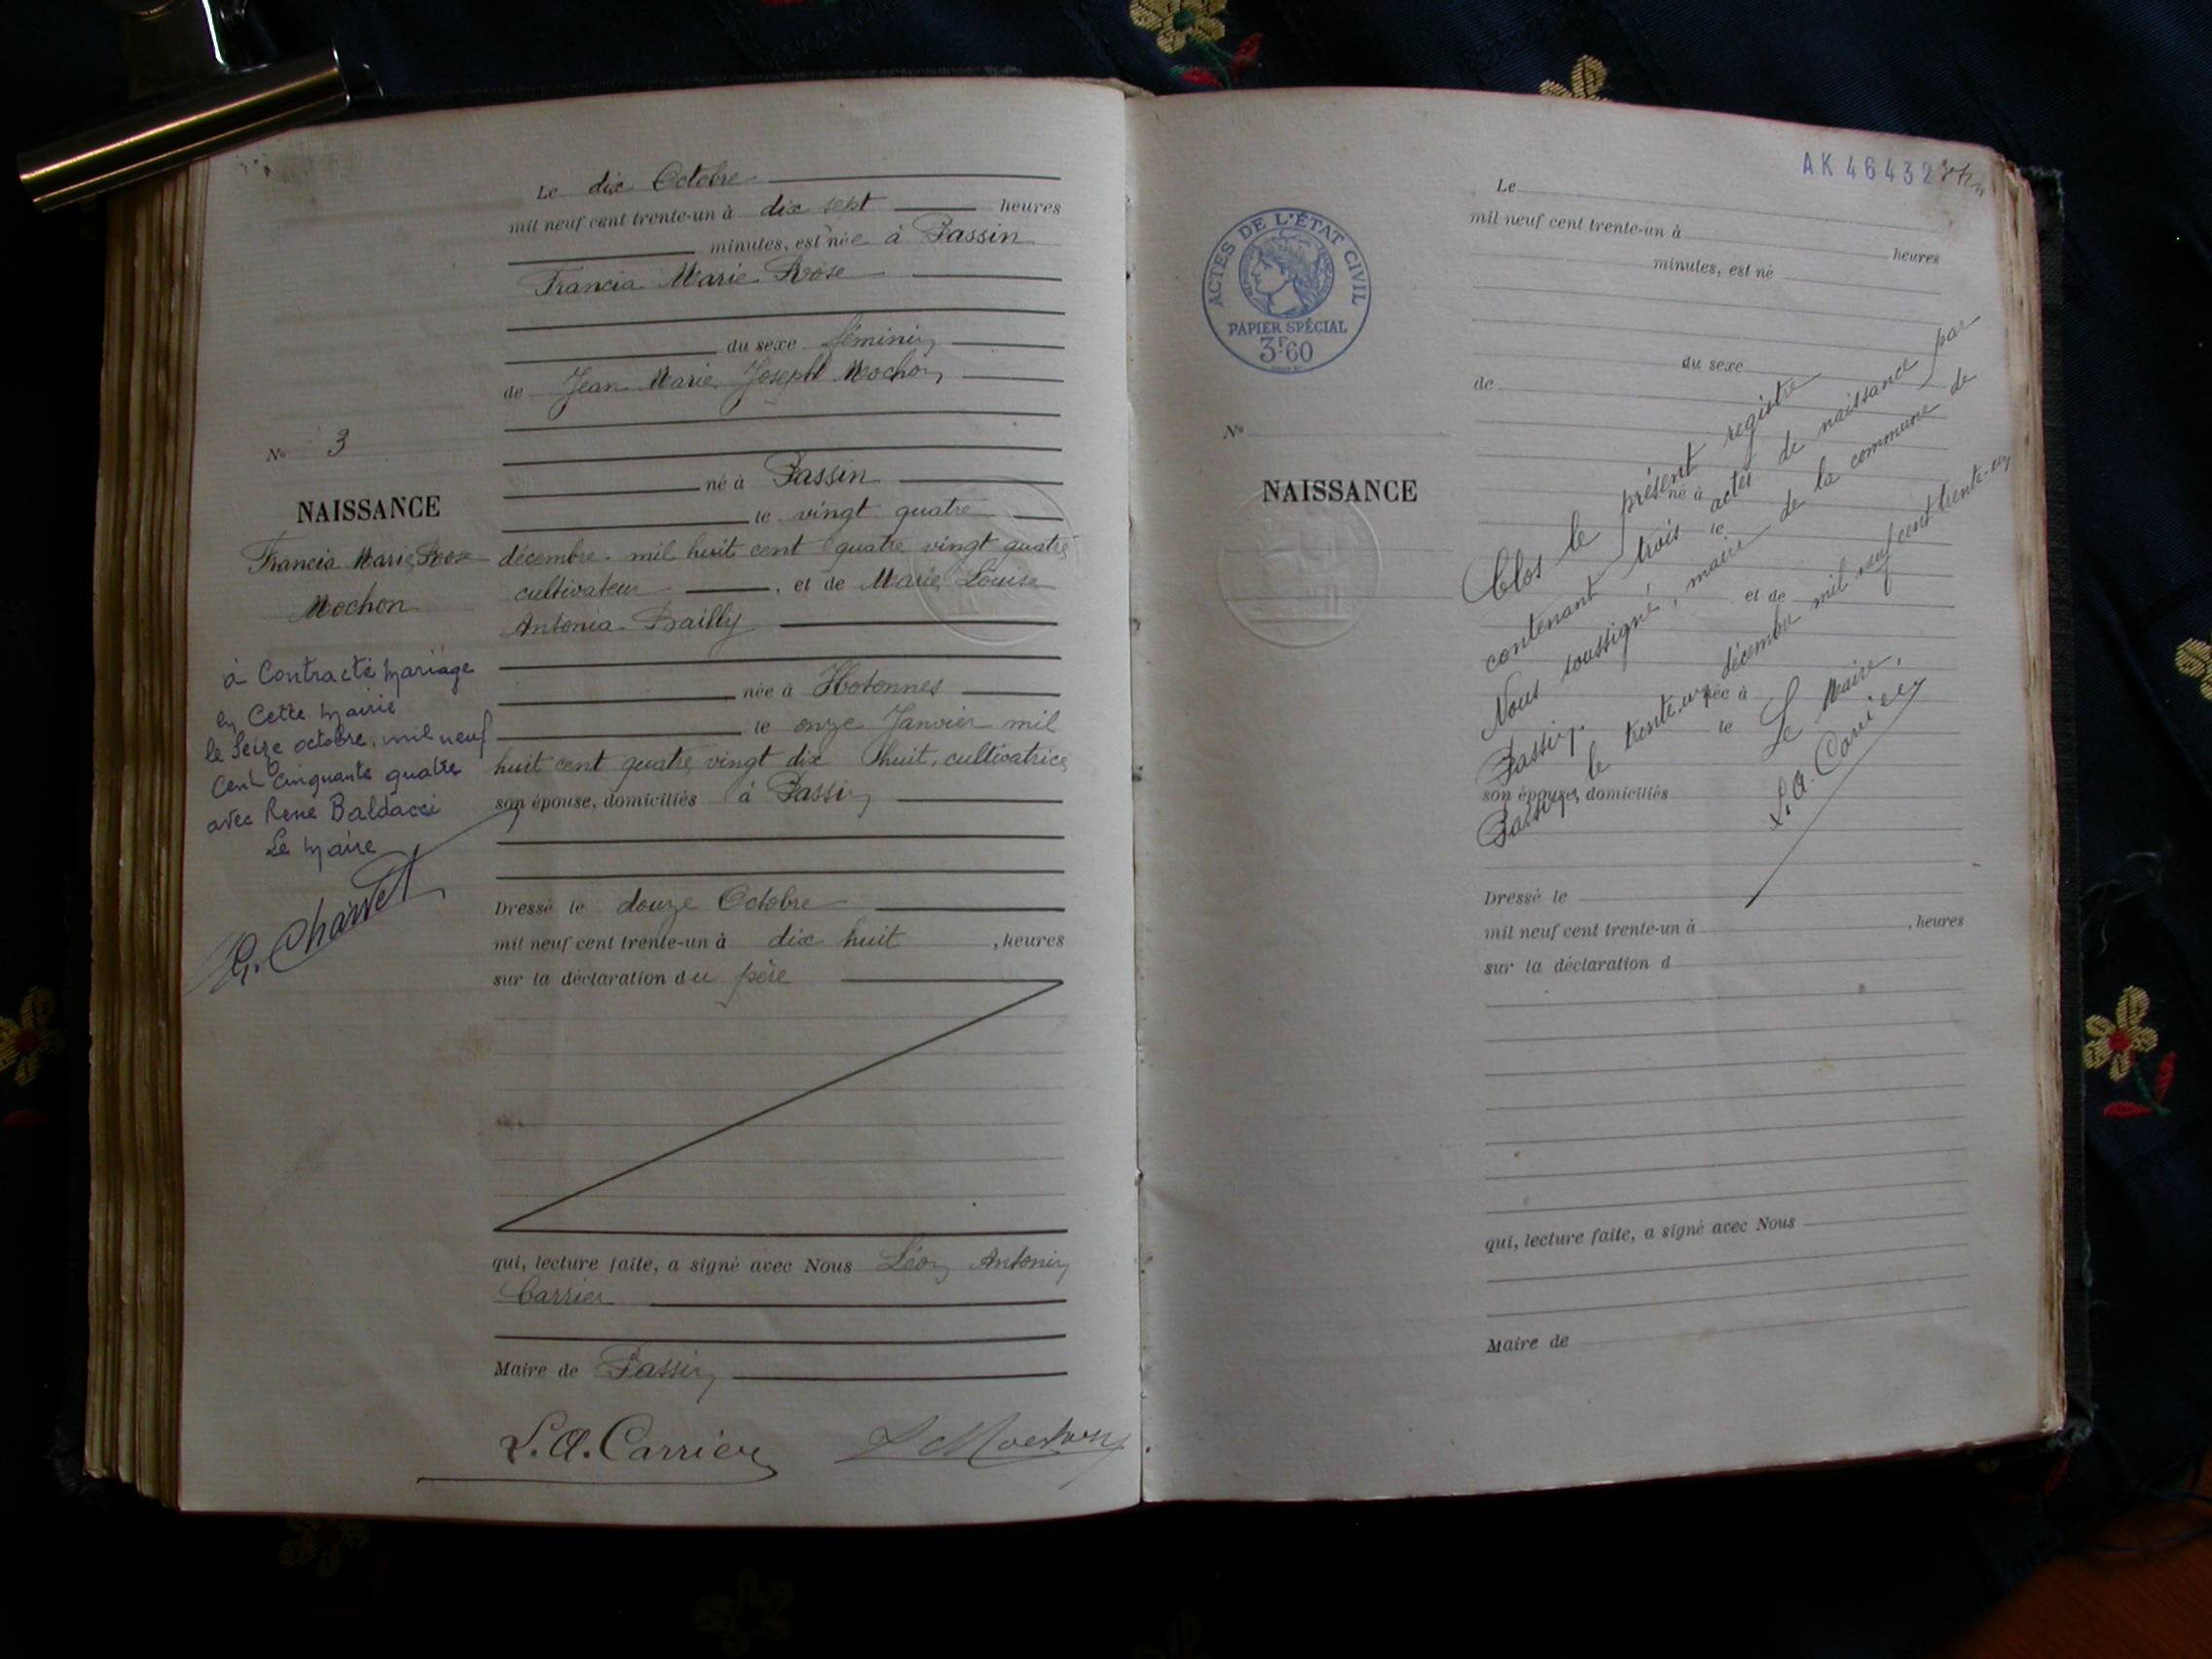 Le dix Octobre
mil neuf cent trente-un à dix sept heures
minutes, est née à Passin
Francia Marie Rose
du sexe féminin
de Jean Marie Joseph Mochon
né à Passin
le vingt quatre
décembre mil huit cent quatre vingt quatre
cultivateur, et de Marie Louise
Antonia Bailly
née à Hotonnes
le onze Janvier mil
huit cent quatre vingt dix huit, cultivatrice
son épouse, domiciliés à Passin
Dressé le douze Octobre
mil neuf cent trente-un à dix huit, heures
sur la déclaration du père
qui, lecture faite, a signé avec Nous Léon Antonin
Carrier
Maire de Passin
L. A. Carrier
Mochon
No 3
NAISSANCE
Francia Marie Rose
Mochon
à Contracté mariage
en Cette mairie
le Seize octobre mil neuf
Cent Cinquante quatre
avec René Baldacci
Le Maire
AK 46432
ACTES DE L'ÉTAT CIVIL
PAPIER SPÉCIAL
3F60
No
NAISSANCE
Le
mil neuf cent trente-un à heures
minutes, est né
du sexe
de
né à
le
et de
née à
le
son épouse, domiciliés
Dressé le
mil neuf cent trente-un à, heures
sur la déclaration d
qui, lecture faite, a signé avec Nous
Maire de
Clos le présent registre
contenant trois actes de naissance par
Nous soussigné, maire de la commune de
Passin.
Passin, le trente-un décembre mil neuf cent trente-un
Le Maire,
L. A. Carrier